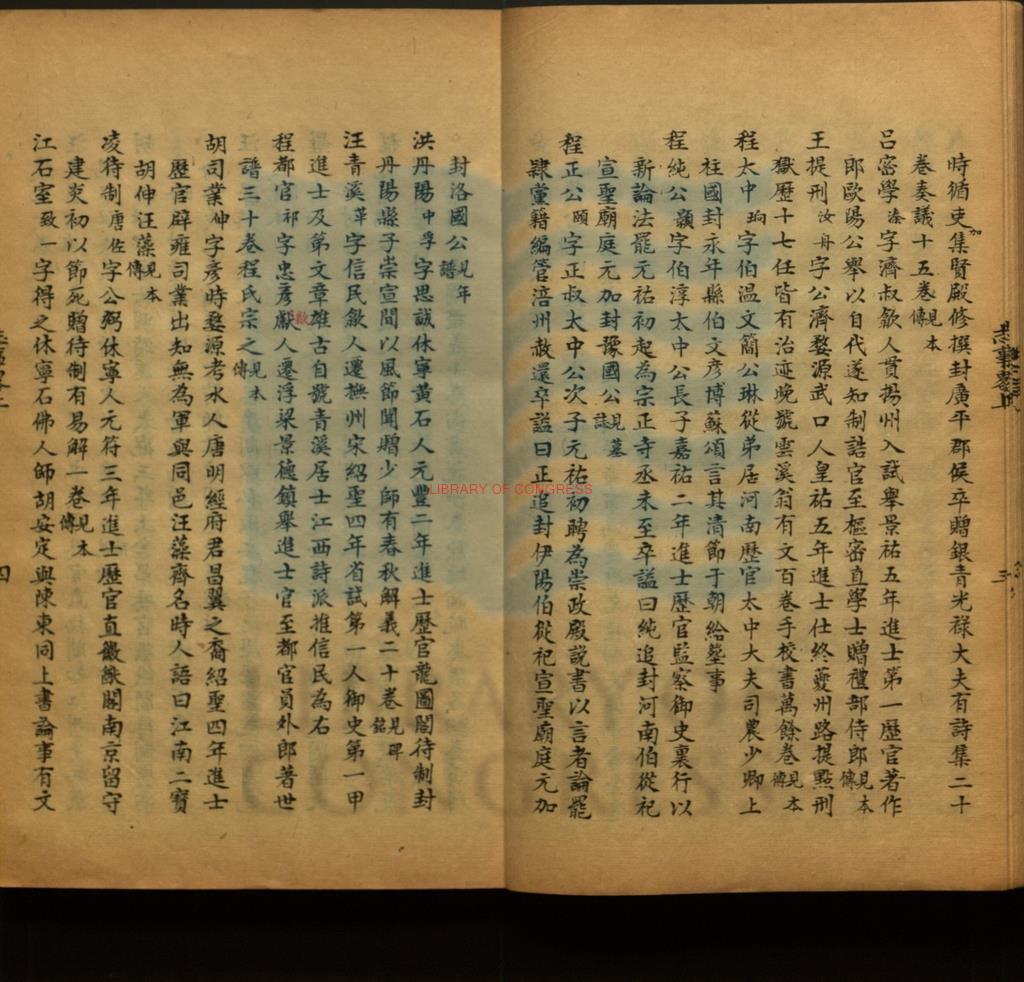 時循吏加集賢殿修撰封廣平郡侯卒贈銀青光祿大夫有詩集二十
卷奏議十五卷見本傳
呂密學溱字濟叔歙人貫揚州入試舉景祐五年進士第一歷官著作
郎歐陽公舉以自代遂知制誥官至樞密直學士贈禮部侍郎見本傳
王提刑汝舟字公濟婺源武口人皇祐五年進士仕終夔州路提點刑
獄歷十七任皆有治迹晚號雲溪翁有文百卷手校書萬餘卷見本傳
程太中珦字伯温文簡公琳從弟居河南歷官太中大夫司農少卿上
柱國封永年縣伯文彦博蘇頌言其清節于朝給塟事
程純公顥字伯淳太中公長子嘉祐二年進士歷官監察御史裏行以
新論法罷元祐初起為宗正寺丞未至卒謚曰純追封河南伯從祀
宣聖廟庭元加封豫國公見墓誌
程正公頤字正叔太中公次子元祐初聘為崇政殿説書以言者論罷
隷黨籍編管涪州赦還卒謚曰正追封伊陽伯從祀宣聖廟庭元加
封洛國公見年譜
洪丹陽中孚字思誠休寧黃石人元豐二年進士歷官龍圖閣待制封
丹陽縣子崇宣間以風節聞贈少師有春秋解義二十卷見碑銘
汪青溪革字信民歙人遷撫州宋紹聖四年省試第一人御史第一甲
進士及第文章雄古自號青溪居士江西詩派推信民為右
程都官祁字忠彦獻歙人遷浮梁景德鎮舉進士官至都官員外郎著世
譜三十卷程氏宗之見本傳
胡司業伸字彦時婺源考水人唐明經府君昌翼之裔紹聖四年進士
歷官辟雍司業出知無為軍與同邑汪藻齊名時人語曰江南二寶
胡伸汪藻見本傳
凌待制唐佐字公弼休寧人元符三年進士歷官直徽猷閣南京留守
建炎初以節死贈待制有易解一卷見本傳
江石室致一字得之休寧石佛人師胡安定與陳東同上書論事有文
四
LIBRARY OF CONGRESS